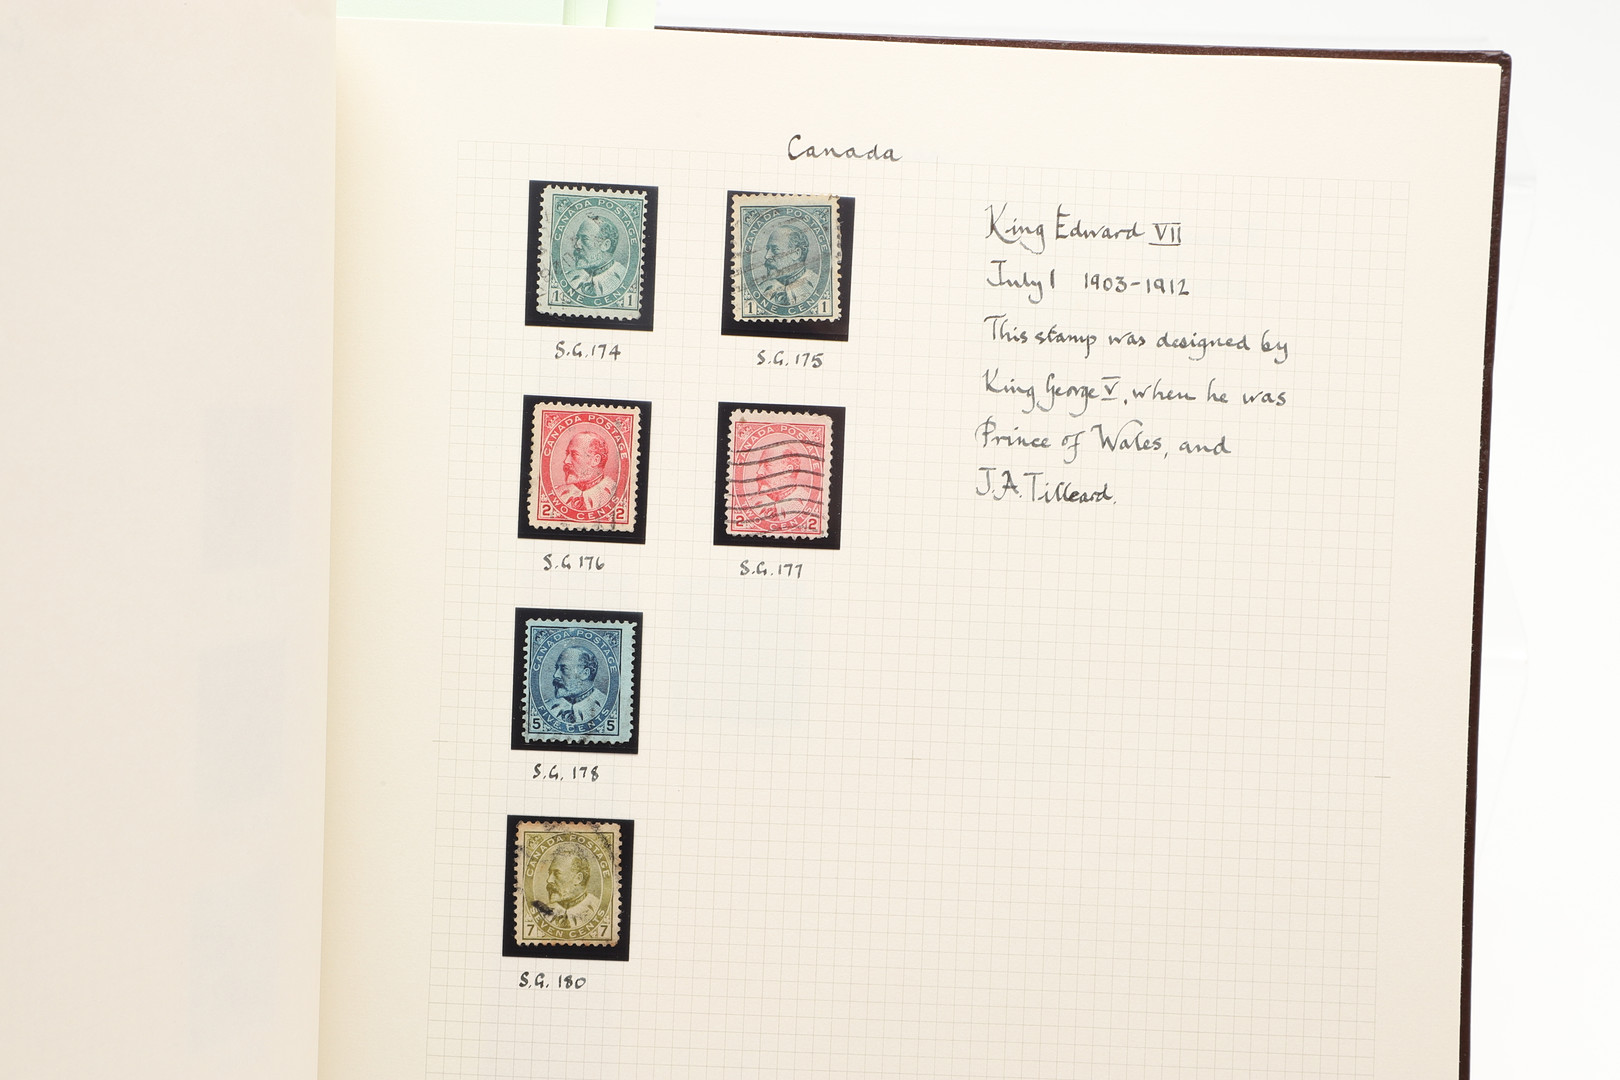 Canada
CANADA POSTAGE
1 ONE CENT 1
S.G. 174
CANADA POSTAGE
1 ONE CENT 1
S.G. 175
King Edward VII
July 1 1903-1912
This stamp was designed by
King George V, when he was
Prince of Wales, and
J.A. Tilleard.
CANADA POSTAGE
2 TWO CENTS 2
S.G 176
CANADA POSTAGE
2 TWO CENTS 2
S.G. 177
CANADA POSTAGE
5 FIVE CENTS 5
S.G. 178
CANADA POSTAGE
7 SEVEN CENTS 7
S.G. 180